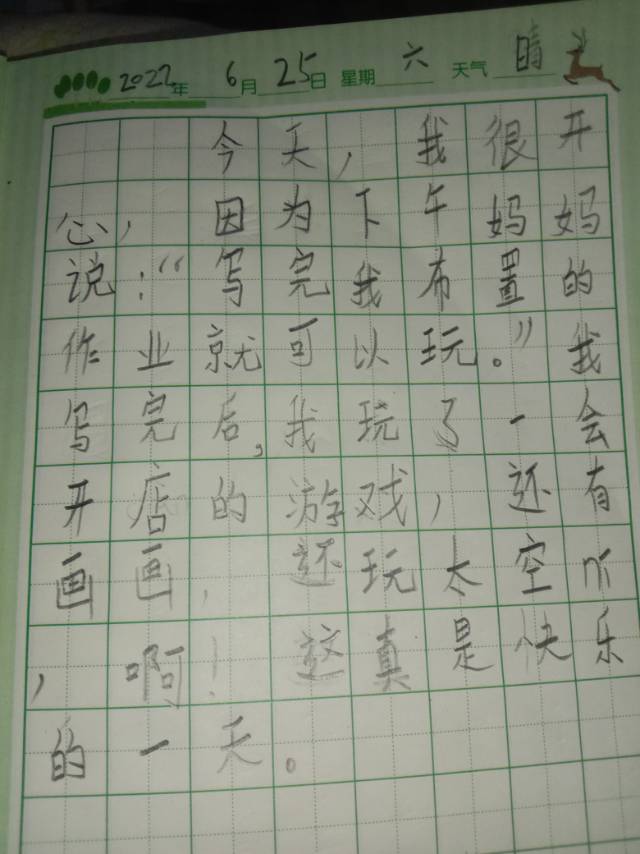 2022年 6月25日 星期 六 天气 晴
今天，我很开
心，因为下午妈妈
说：“写完我布置的
作业就可以玩。”我
写完后，我玩了一会
开店的游戏，还有
画画，还玩太空
，啊！这真是快乐
的一天。